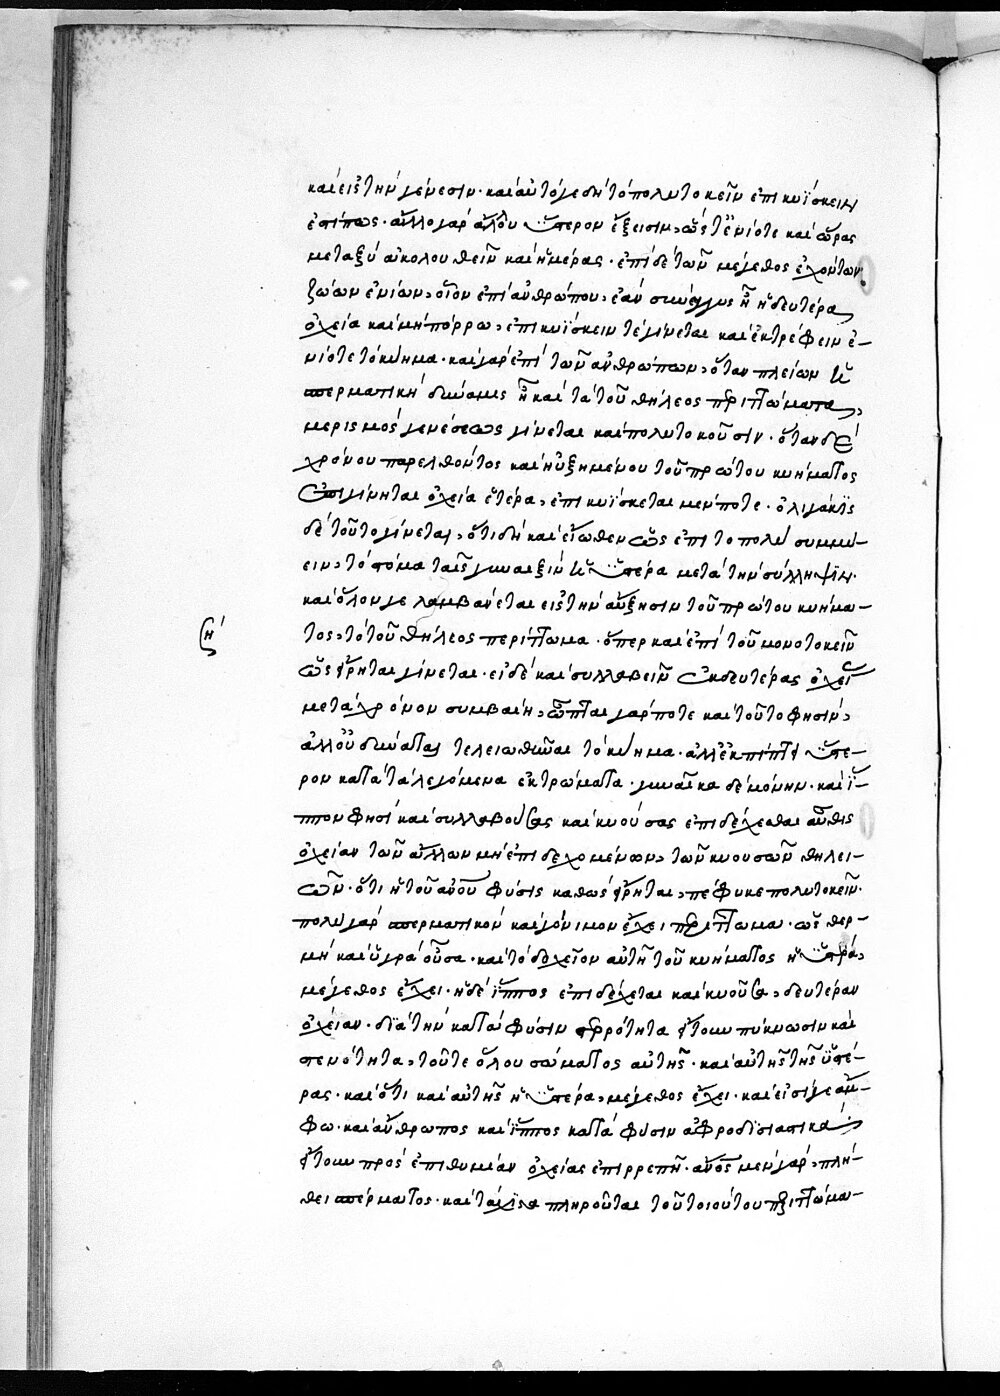 καὶ εἰς τὴν γένεσιν· καὶ αὐτό γε δὴ τὸ πολυτοκεῖν ἐπικυΐσκειν
ἐστί πως· ἄλλο γὰρ ἄλλου ὕστερον ἔξεισιν, ὥς τ' ἐνίοτε καὶ ὥρας
μεταξὺ ἀκολουθεῖν καὶ ἡμέρας· ἐπὶ δὲ τῶν μέγεθος ἐχόντων
ζώων ἐνίων, οἷον ἐπὶ ἀνθρώπου, ἐὰν σύνεγγυς ᾖ ἡ δευτέρα
ὀχεία καὶ μὴ πόρρω, ἐπικυΐσκειν τε γίνεται καὶ ἐκτρέφειν ἐ-
νίοτε τὸ κύημα· καὶ γὰρ ἐπὶ τῶν ἀνθρώπων, ὅταν πλείων ἡ
σπερματικὴ δύναμις ᾖ καὶ τὰ τοῦ θήλεος περιττώματα,
μερισμὸς γενέσεως γίνεται καὶ πολυτοκοῦσιν· ὅταν δὲ
χρόνου παρελθόντος καὶ ηὐξημένου τοῦ πρώτου κυήματος
ἐπιγίνηται ὀχεία ἑτέρα, ἐπικυΐσκεται μέν ποτε· ὀλιγάκις
δὲ τοῦτο γίνεται, ὅτι δὴ καὶ εἴωθεν ὡς ἐπὶ τὸ πολὺ συμμύ-
ειν, τὸ στόμα ταῖς γυναιξὶν ἡ ὑστέρα μετὰ τὴν σύλληψιν·
καὶ ὅλον γε λαμβάνεται εἰς τὴν αὔξησιν τοῦ πρώτου κυήμα-
τος, τὸ τοῦ θήλεος περίττωμα· ὅπερ καὶ ἐπὶ τοῦ μονοτοκεῖν
ὡς εἴρηται γίνεται· εἰ δὲ καὶ συλλαβεῖν ἐκ δευτέρας ὀχεί
μετὰ χρόνον συμβαίη, ὦπται γάρ ποτε καὶ τοῦτο φησίν,
ἀλλ' οὐ δύναται τελειωθῆναι τὸ κύημα· ἀλλ' ἐκπίπτει ὕστε-
ρον κατὰ τὰ λεγόμενα ἐκτρώματα· γυναῖκα δὲ μόνην· καὶ ἵπ-
πον φησὶ καὶ συλλαβούσας καὶ κυούσας ἐπιδέχεσθαι αὖθις
ὀχείαν τῶν ἄλλων μὴ ἐπιδεχομένων, τῶν κυουσῶν θηλει-
ῶν· ὅτι ἡ τοῦ ἀνου φύσις καθὼς εἴρηται, πέφυκε πολυτοκεῖν·
πολὺ γὰρ σπερματικὸν καὶ γόνιμον ἔχει περίττωμα· ὡς θερ-
μὴ καὶ ὑγρὰ οὖσα· καὶ τὸ δοχεῖον αὐτῆ τοῦ κυήματος ἡ ὑστέρα,
μέγεθος ἔχει· ἡ δὲ ἵππος ἐπιδέχεται καὶ κυοῦσα, δευτέραν
ὀχείαν· διὰ τὴν κατὰ φύσιν στερρότητα ἤτοι πύκνωσιν καὶ
στενότητα, τοῦ τε ὅλου σώματος αὐτῆς· καὶ αὐτῆς τῆς ὑστέ-
ρας· καὶ ὅτι καὶ αὐτῆς ἡ ὑστέρα, μέγεθος ἔχει· καὶ εἰσί γε ἄμ-
φω· καὶ ἄνθρωπος καὶ ἵππος κατὰ φύσιν ἀφροδισιαστικὰ
ἤτοι πρὸς ἐπιθυμίαν ὀχείας ἐπιρρεπῆ· ἄνος μὲν γὰρ, πλή-
θει σπέρματος· καὶ τάχιστα πληροῦται τοῦ τοιούτου περιττώμα-